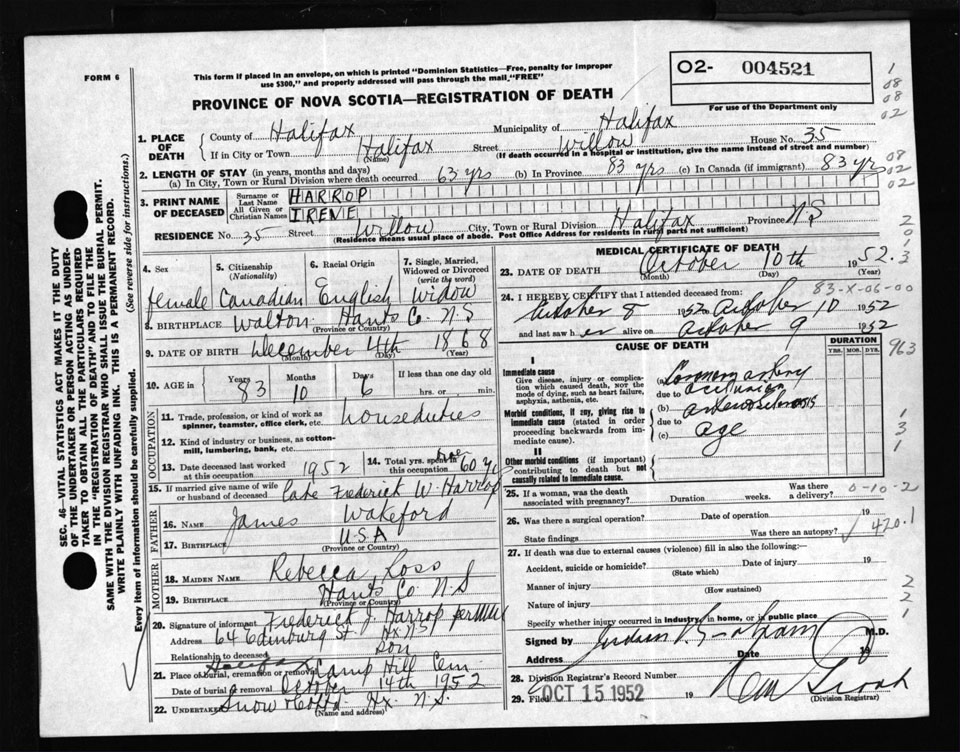 FORM 6
This form if placed in an envelope, on which is printed "Dominion Statistics—Free, penalty for improper
use $300," and properly addressed will pass through the mail "FREE"
PROVINCE OF NOVA SCOTIA—REGISTRATION OF DEATH
O2- 004521
For use of the Department only
1. PLACE OF DEATH
County of Halifax Municipality of Halifax
If in City or Town Halifax Street Willow House No. 35
(Name) (If death occurred in a hospital or institution, give the name instead of street and number)
2. LENGTH OF STAY (in years, months and days)
(a) In City, Town or Rural Division where death occurred 63 yrs (b) In Province 83 yrs (c) In Canada (if immigrant) 83 yrs
3. PRINT NAME OF DECEASED
Surname or Last Name HARROP
All Given or Christian Names IRENE
RESIDENCE No. 35 Street Willow City, Town or Rural Division Halifax Province N.S
(Residence means usual place of abode. Post Office Address for residents in rural parts not sufficient)
4. Sex 5. Citizenship (Nationality) 6. Racial Origin 7. Single, Married, Widowed or Divorced (write the word)
female Canadian English Widow
8. BIRTHPLACE Walton Hants Co N.S
(Province or Country)
9. DATE OF BIRTH December 4th 1868
(Month) (Day) (Year)
10. AGE in Years Months Days If less than one day old
83 10 6 hrs. or min.
OCCUPATION
11. Trade, profession, or kind of work as spinner, teamster, office clerk, etc. houseduties
12. Kind of industry or business, as cotton-mill, lumbering, bank, etc.
13. Date deceased last worked at this occupation 1952 14. Total yrs. spent in this occupation 60 yrs
15. If married give name of wife or husband of deceased Late Frederick W. Harrop
FATHER
16. NAME James Wakeford
17. BIRTHPLACE USA
(Province or Country)
MOTHER
18. MAIDEN NAME Rebecca Ross
19. BIRTHPLACE Hants Co N.S
(Province or Country)
20. Signature of informant Frederick J. Harrop per
Address 64 Edinburg St Hx NS
Relationship to deceased Son
21. Place of burial, cremation or removal Halifax Camp Hill Cem
Date of burial or removal October 14th 1952
22. Undertaker Snow & Co Ltd Hx. N.S
(Name and address)
MEDICAL CERTIFICATE OF DEATH
23. DATE OF DEATH October 10th 1952.
(Month) (Day) (Year)
83-X-06-00
24. I HEREBY CERTIFY that I attended deceased from:
October 8 1952 to October 10 1952
and last saw her alive on October 9 1952
CAUSE OF DEATH
DURATION
YRS. MOS. DYS.
I
Immediate cause
Give disease, injury or complication which caused death, NOT the mode of dying, such as heart failure, asphyxia, asthenia, etc.
(a) Coronary artery occlusion
due to
Morbid conditions, if any, giving rise to immediate cause (stated in order proceeding backwards from immediate cause).
(b) arteriosclerosis
due to
(c) age
II
Other morbid conditions (if important) contributing to death but not causally related to immediate cause.
25. If a woman, was the death associated with pregnancy? Duration weeks. Was there a delivery? 0-10-22
26. Was there a surgical operation? Date of operation 19
State findings Was there an autopsy? 420.1
27. If death was due to external causes (violence) fill in also the following:—
Accident, suicide or homicide? Date of injury 19
(State which)
Manner of injury
(How sustained)
Nature of injury
Specify whether injury occurred in industry, in home, or in public place
Signed by M.D.
Address Date 19
28. Division Registrar's Record Number
29. Filed OCT 15 1952 19
(Division Registrar)
SEC. 46—VITAL STATISTICS ACT MAKES IT THE DUTY
OF THE UNDERTAKER OR PERSON ACTING AS UNDER-
TAKER TO OBTAIN ALL THE PARTICULARS REQUIRED
IN THE "REGISTRATION OF DEATH" AND TO FILE THE
SAME WITH THE DIVISION REGISTRAR WHO SHALL ISSUE THE BURIAL PERMIT.
WRITE PLAINLY WITH UNFADING INK. THIS IS A PERMANENT RECORD.
Every item of information should be carefully supplied. (See reverse side for instructions.)
1
08
08
02
08
02
02
2
0
1
3
963
1
3
1
2
2
1